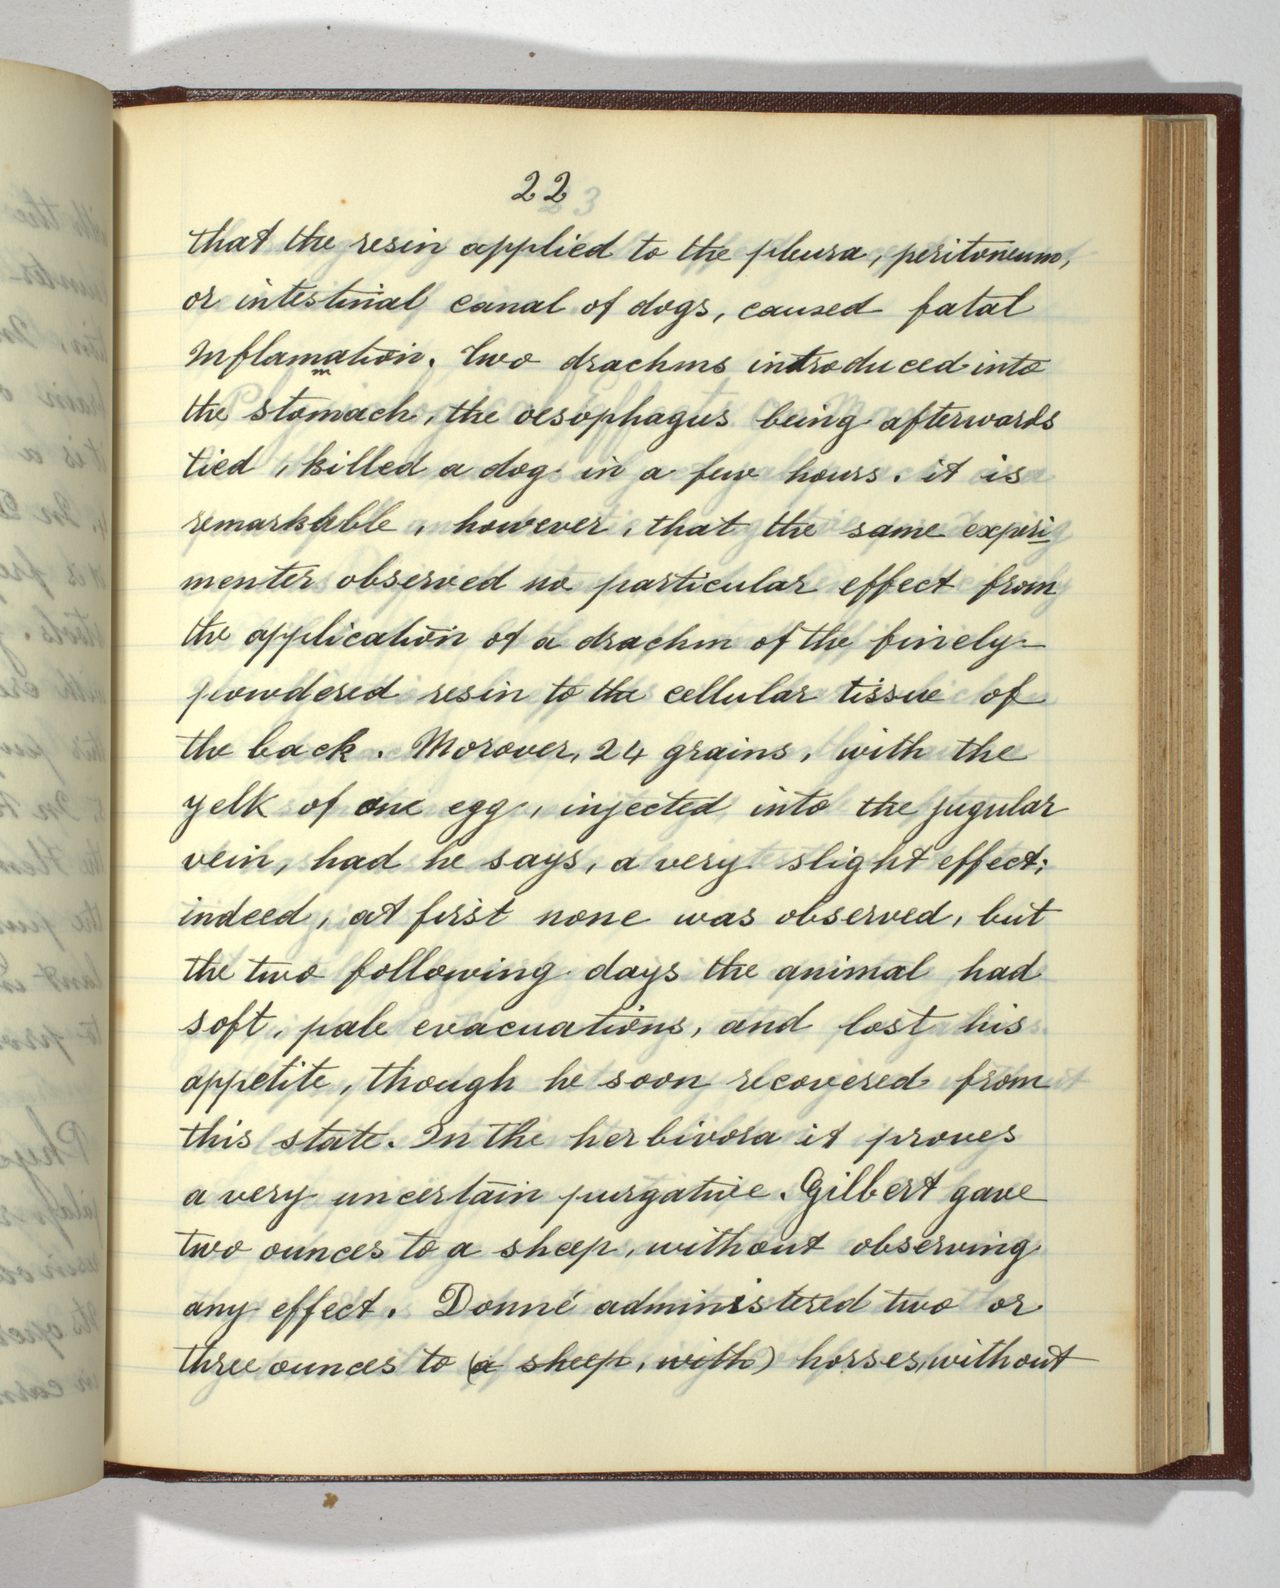 22
that the resin applied to the pleura, peritoneum,
or intestinal canal of dogs, caused fatal
Inflammation. Two drachms introduced into
the stomach, the oesophagus being afterwards
tied, killed a dog in a few hours. it is
remarkable, however, that the same experi
menter observed no particular effect from
the application of a drachm of the finely-
powdered resin to the cellular tissue of
the back. Morover, 24 grains, with the
yelk of one egg, injected into the jugular
vein, had he says, a very slight effect;
indeed, at first none was observed, but
the two following days the animal had
soft, pale evacuations, and lost his
appetite, though he soon recovered from
this state. In the herbivora it proves
a very uncertain purgative. Gilbert gave
two ounces to a sheep, without observing
any effect. Donné administered two or
three ounces to (a sheep, with) horses, without